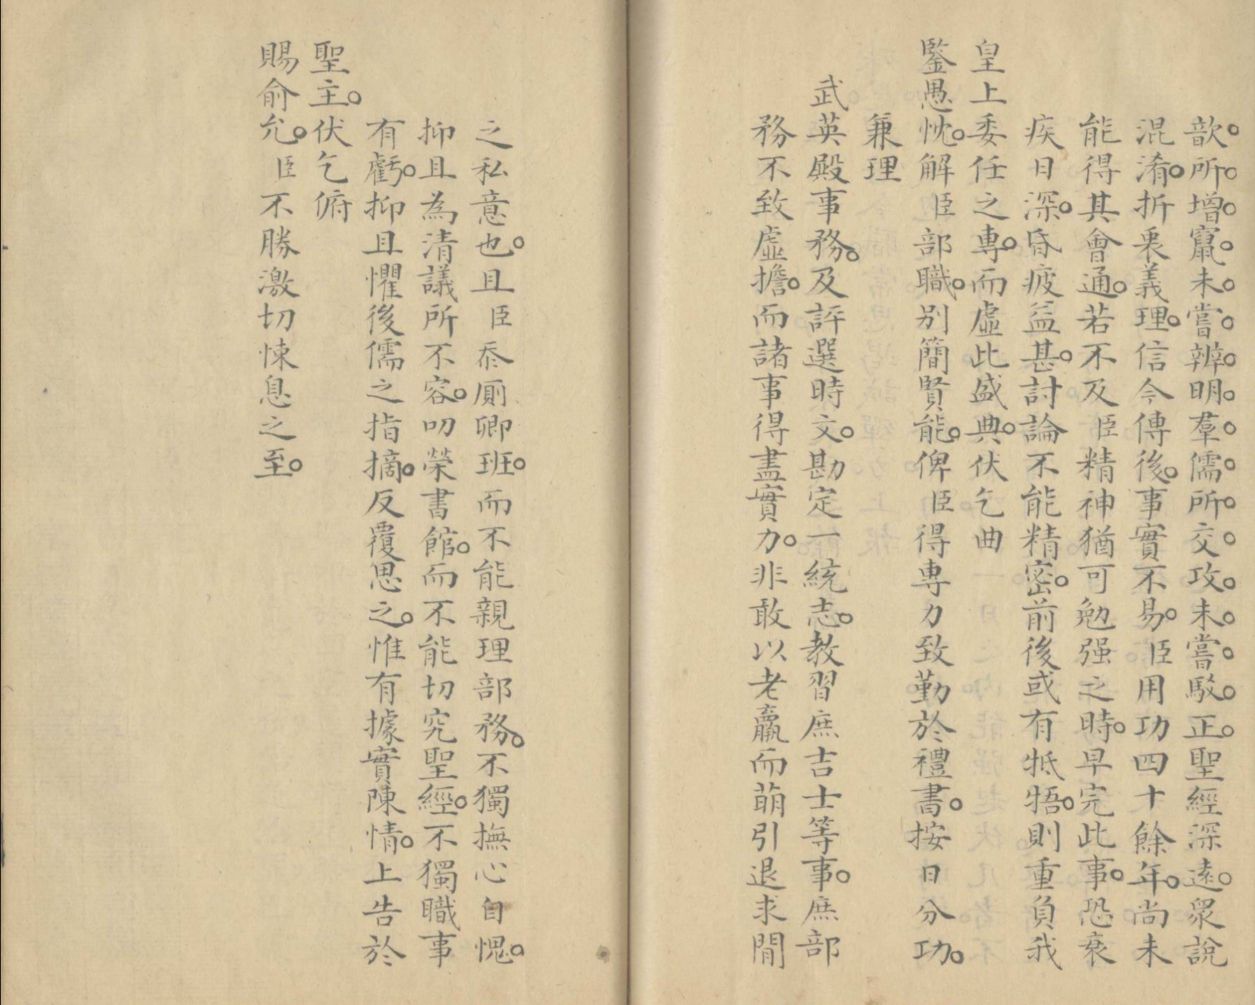 歆所增竄未嘗辨明羣儒所交攻未嘗駁正聖經深遠衆說
混淆折衷義理信今傳後事實不易臣用功四十餘年尚未
能得其會通若不及臣精神猶可勉强之時早完此事恐衰
疾日深昏疲益甚討論不能精密前後或有牴牾則重負我
皇上委任之專而虛此盛典伏乞曲
鑒愚忱解臣部職別簡賢能俾臣得專力致勤於禮書按日分功
兼理
武英殿事務及評選時文勘定一統志教習庶吉士等事庶部
務不致虛擔而諸事得盡實力非敢以老羸而萌引退求閒
之私意也且臣忝厠卿班而不能親理部務不獨撫心自愧
抑且為清議所不容叨榮書館而不能切究聖經不獨職事
有虧抑且懼後儒之指摘反覆思之惟有據實陳情上告於
聖主伏乞俯
賜俞允臣不勝激切悚息之至